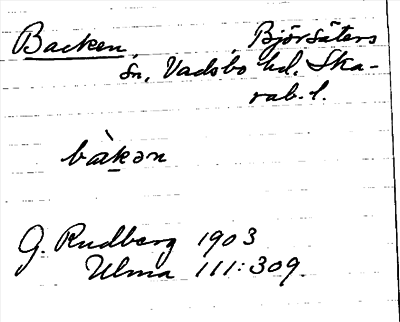 Backen, Björsäters
sn, Vadsbo hd. Ska-
rab. l.
bàkən
G. Rudberg 1903
Ulma 111:309.